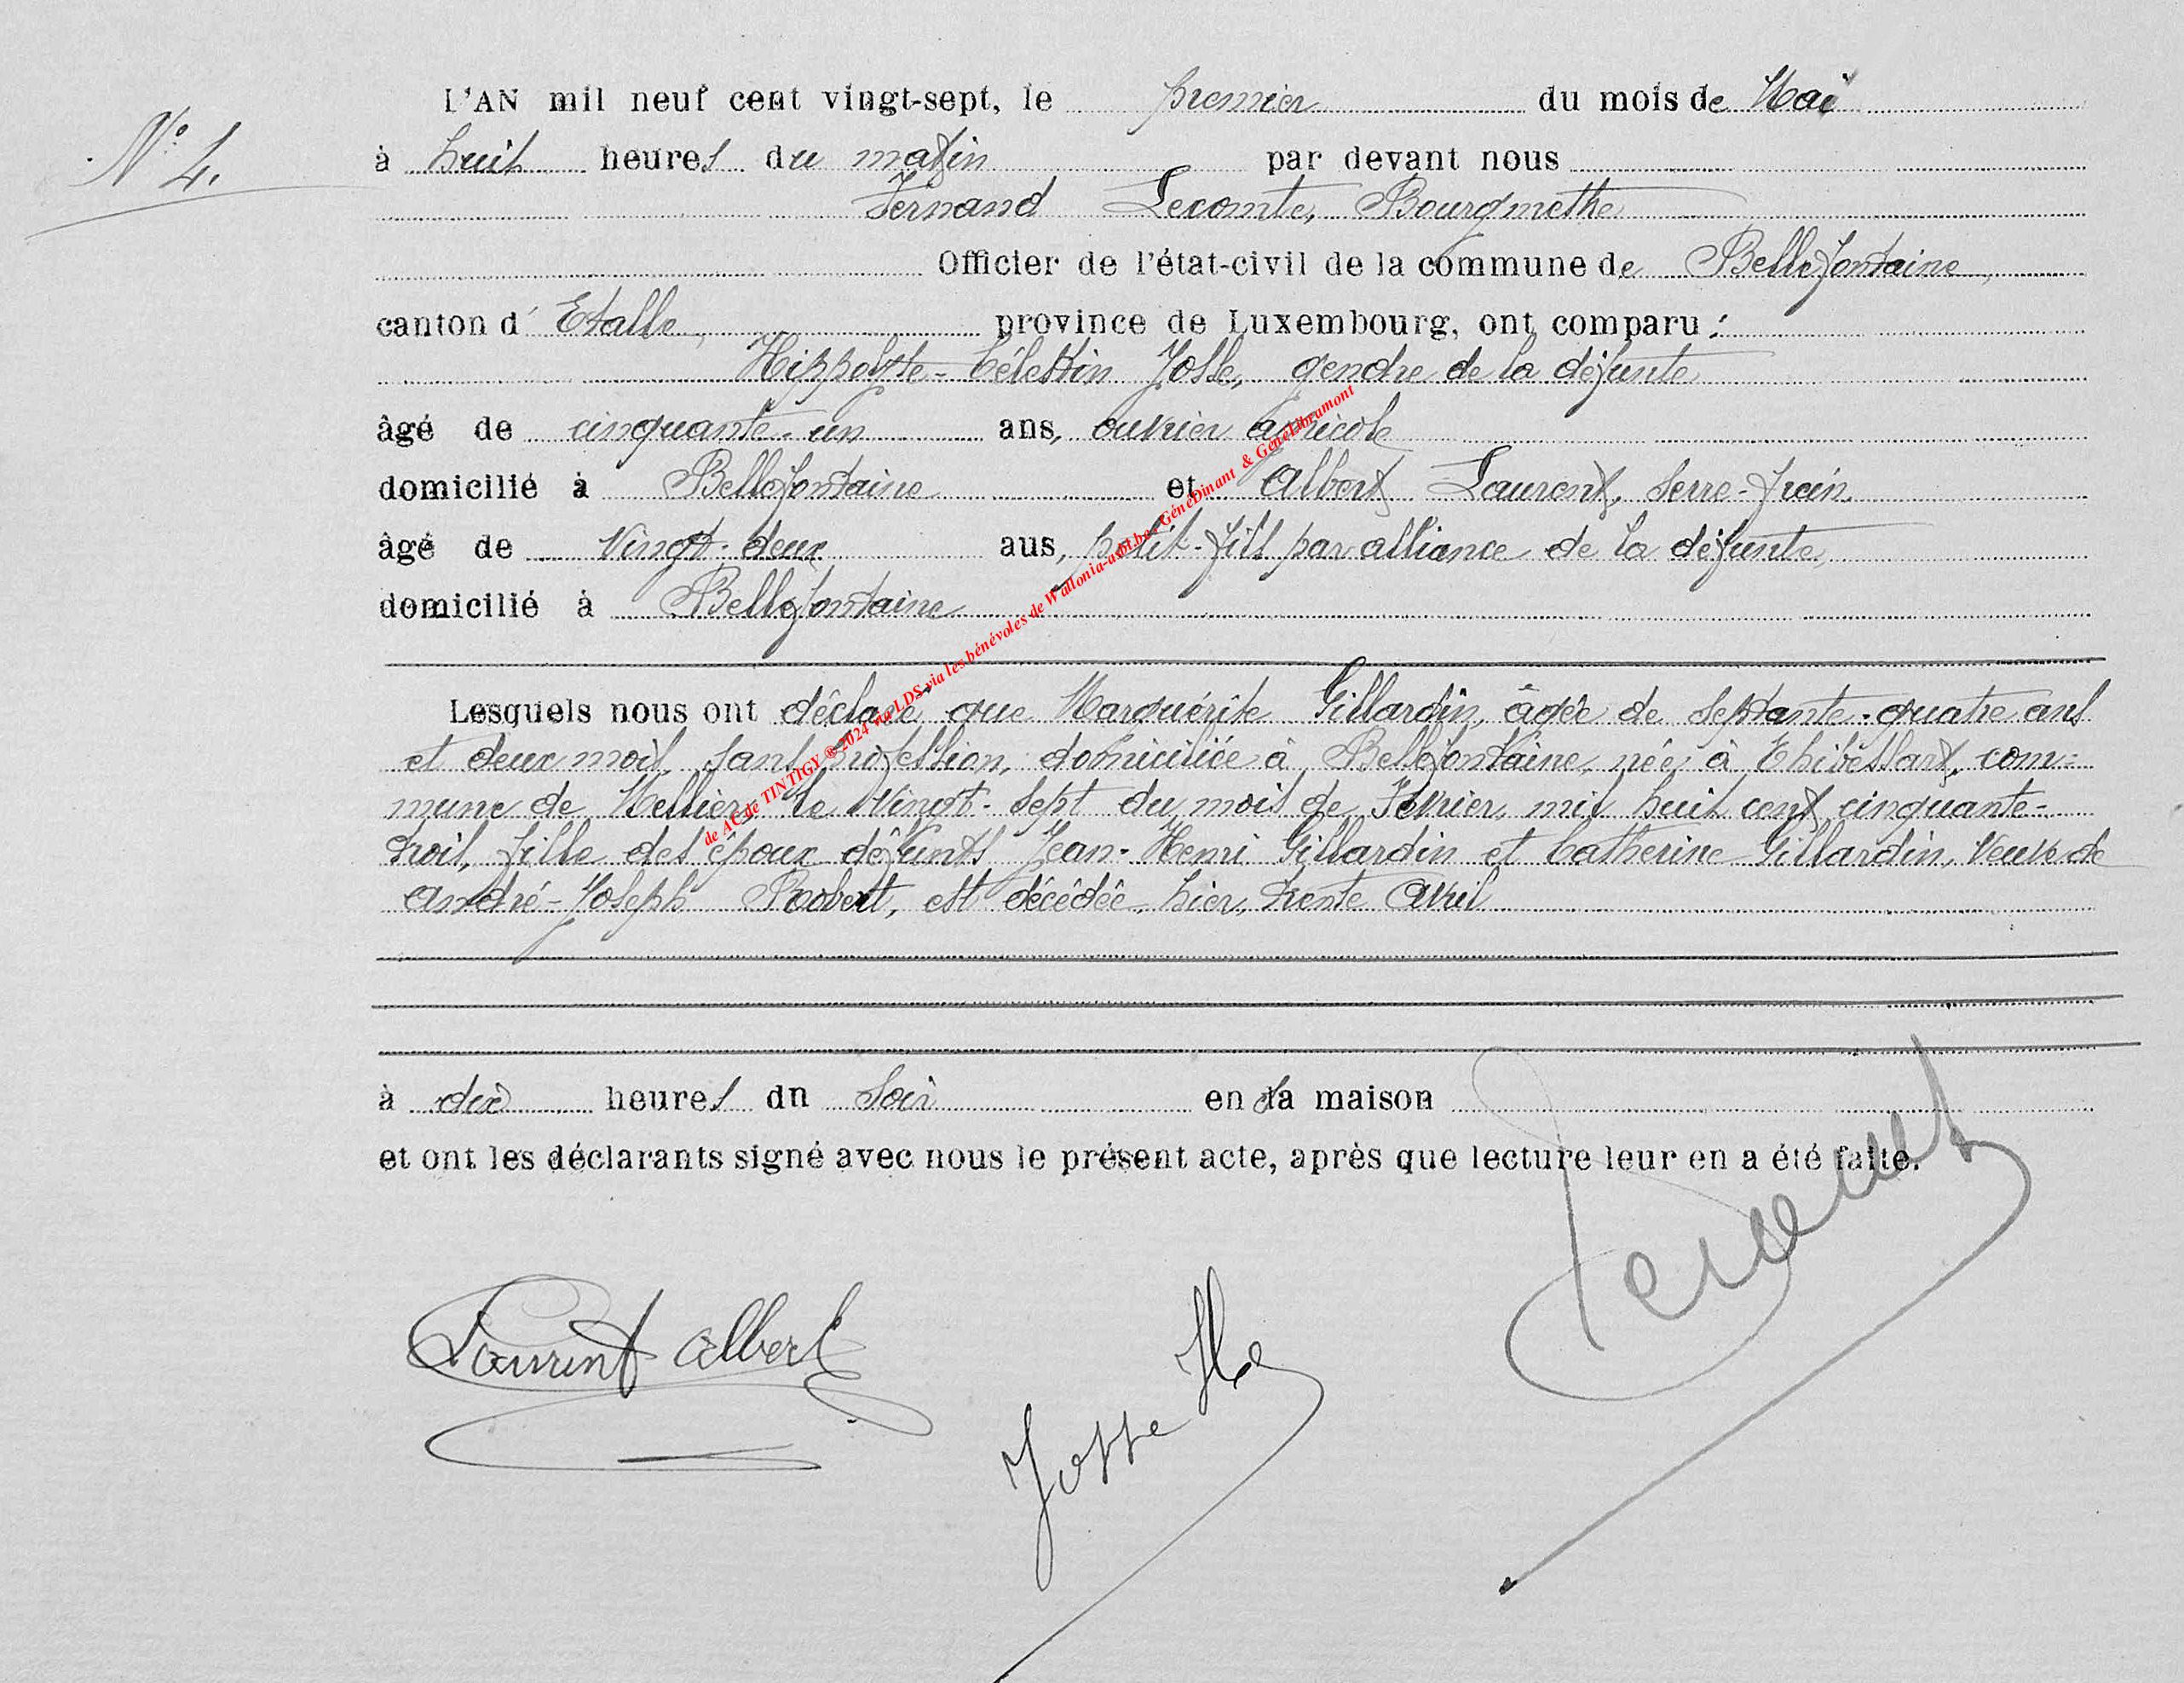 L'AN mil neuf cent vingt-sept, le premier du mois de Mai
N° 4.
à huit heures du matin par devant nous
Fernand Lecomte, Bourgmestre
Officier de l'état-civil de la commune de Bellefontaine,
canton d' Etalle, province de Luxembourg, ont comparu :
Hippolyte-Célestin Josse, gendre de la défunte
âgé de cinquante-un ans, ouvrier agricole
domicilié à Bellefontaine et Albert Laurent, serre-frein
âgé de vingt-deux ans, petit-fils par alliance de la défunte,
domicilié à Bellefontaine
Lesquels nous ont déclaré que Marguérite Gillardin, âgée de septante-quatre ans
et deux mois, sans profession, domiciliée à Bellefontaine, née à Thibessart, com-
mune de Mellier, le vingt-sept du mois de Février, mil huit cent cinquante-
trois, fille des époux défunts Jean-Henri Gillardin et Catherine Gillardin, veuve de
André-Joseph Robert, est décédée, hier, trente Avril
à dix heures du soir en sa maison
et ont les déclarants signé avec nous le présent acte, après que lecture leur en a été faite.
Laurent Albert
Josse
de AC de TINTIGY ® 2024 via LDS via les bénévoles de Wallonia-asbl.be - GénéDinant & GénéLibramont